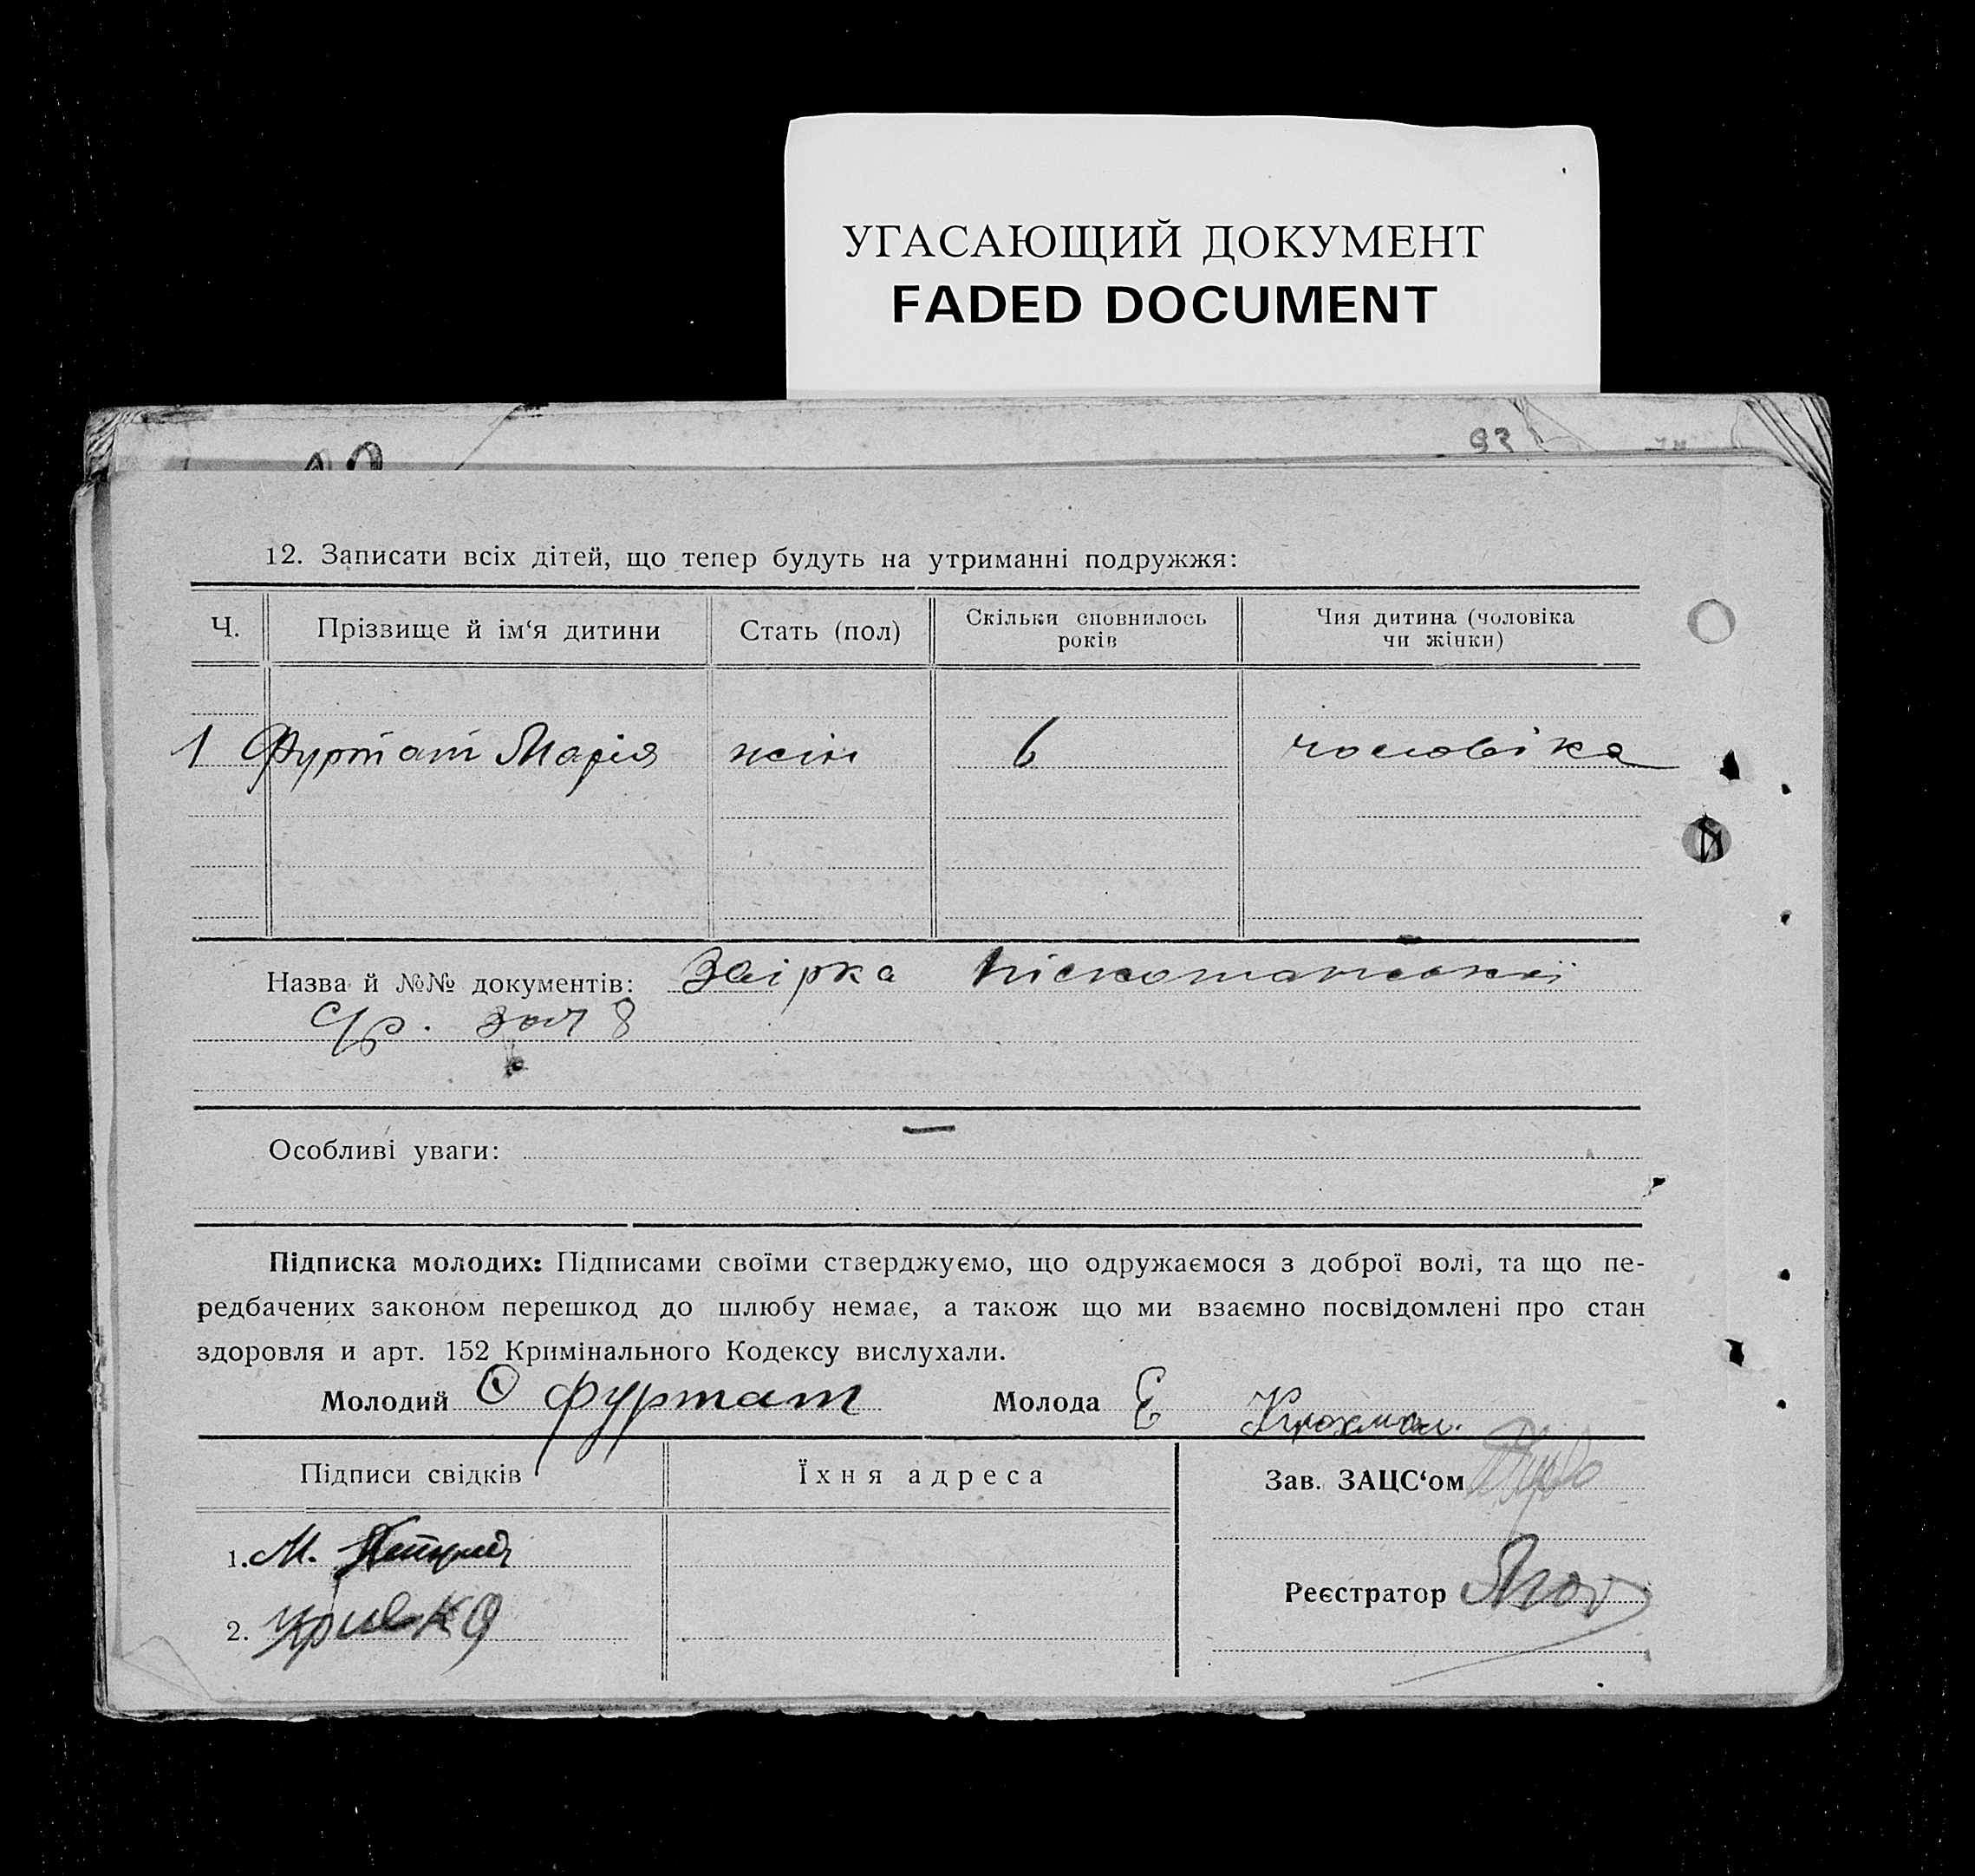 УГАСАЮЩИЙ ДОКУМЕНТ
FADED DOCUMENT
93
12. Записати всіх дітей, що тепер будуть на утриманні подружжя:
Ч. Прізвище й ім‘я дитини Стать (пол) Скільки сповнилось років Чия дитина (чоловіка чи жінки)
1 Фуртат Марія жін 6 чоловіка
Назва й №№ документів: Звірка
с/р. за № 8
Особливі уваги: —
Підписка молодих: Підписами своїми стверджуємо, що одружаємося з доброї волі, та що пе-
редбачених законом перешкод до шлюбу немає, а також що ми взаємно посвідомлені про стан
здоровля и арт. 152 Кримінального Кодексу вислухали.
Молодий О Фуртат Молода Є Крохмал.
Підписи свідків Їхня адреса Зав. ЗАЦС‘ом
1. М.
Реєстратор
2. Кривка